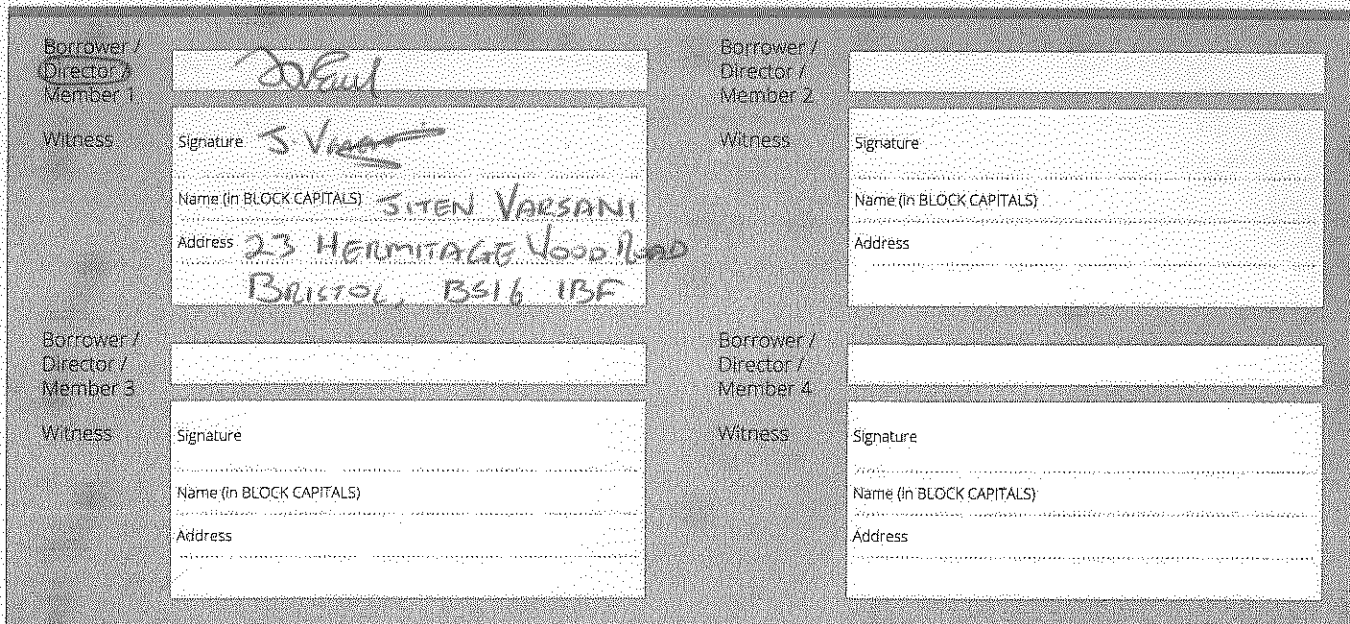 Borrower /
Director /
Member 1
Witness
Signature J Varsani
Name (in BLOCK CAPITALS) JITEN VARSANI
Address 23 HERMITAGE WOOD ROAD
BRISTOL, BS16 1BF
Borrower /
Director /
Member 2
Witness
Signature
Name (in BLOCK CAPITALS)
Address
Borrower /
Director /
Member 3
Witness
Signature
Name (in BLOCK CAPITALS)
Address
Borrower /
Director /
Member 4
Witness
Signature
Name (in BLOCK CAPITALS)
Address